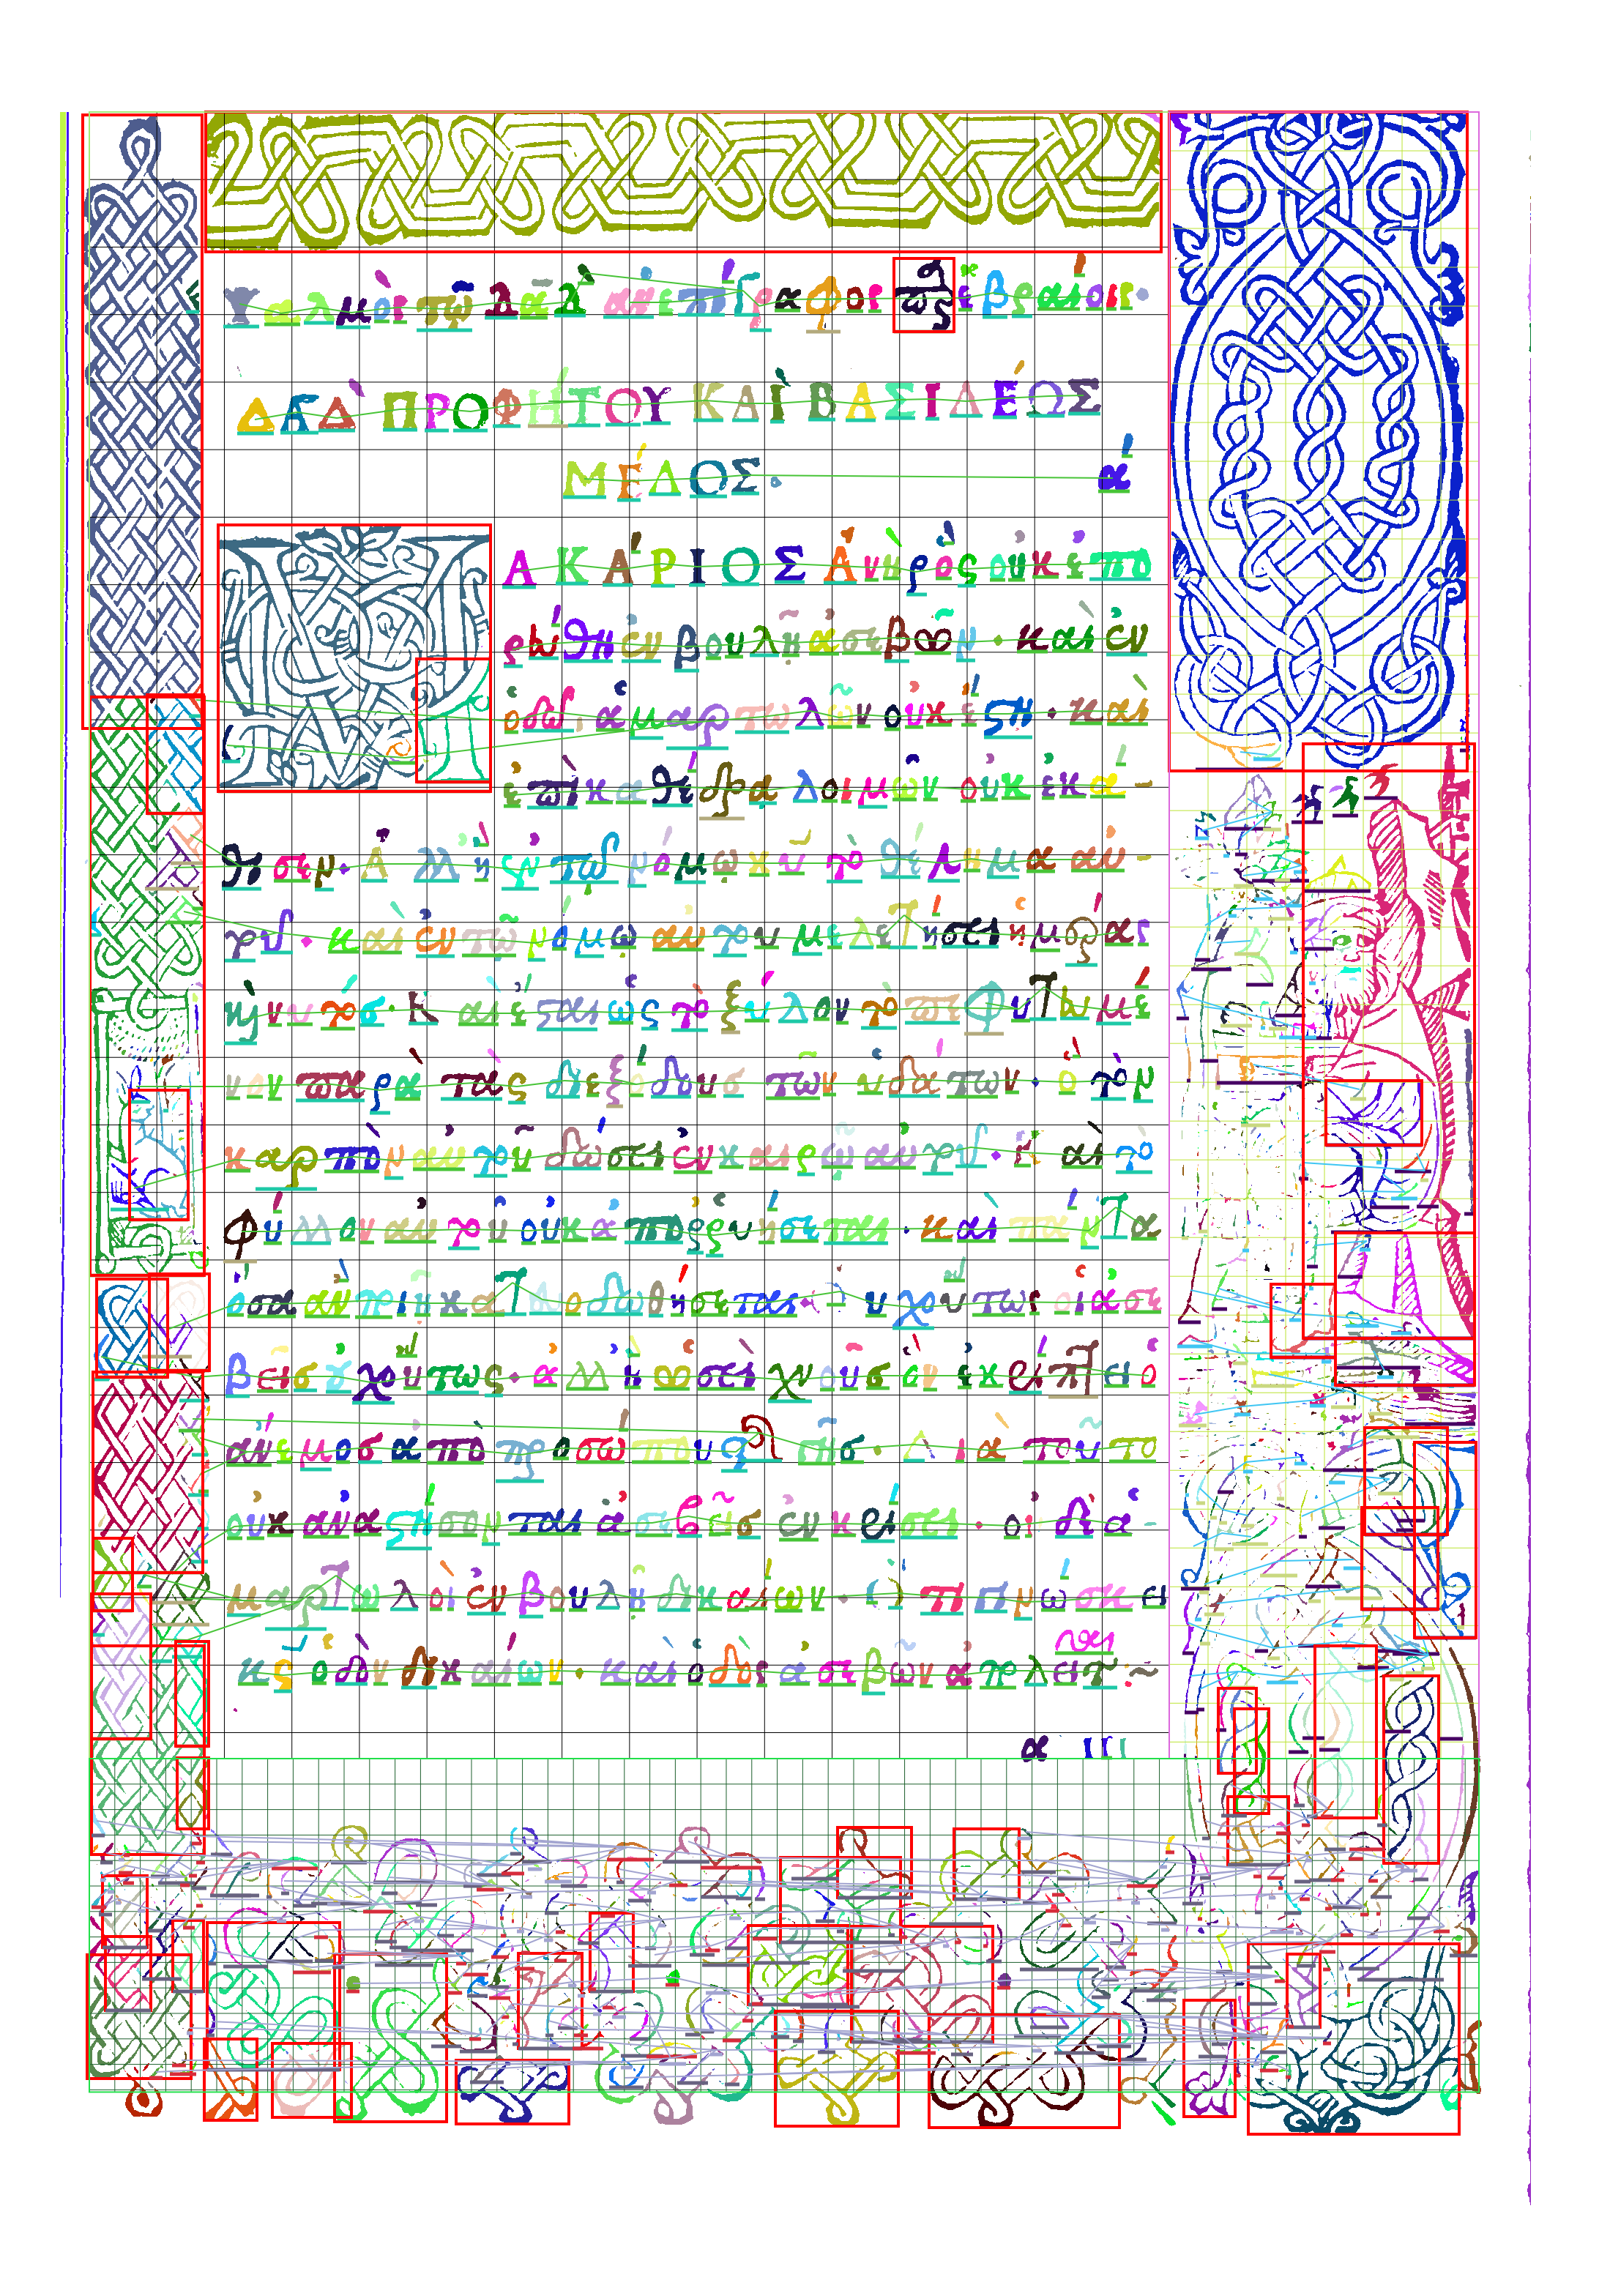 Ψαλμὸς τῷ Δαδ̀ ἀνεπίγραφος παρ' ἑβραίοις·
ΔΑΔ̀ ΠΡΟΦΗΤΟΥ ΚΑῚ ΒΑΣΙΛΈΩΣ
ΜΈΛΟΣ. ά
ΑΚΆΡΙΟΣ Ἀνὴρ ὃς οὐκ ἐπο
ρεύθη ἐν βουλῇ ἀσεβῶν· καὶ ἐν
ὁδῷ ἁμαρτωλῶν οὐκ ἔστη· καὶ
ἐπὶ καθέδρα λοιμῶν οὐκ ἐκά-
θισεν· Ἀλλ' ἢ ἐν τῷ νόμῳ κυ τὸ θέλημα αὐ-
τοῦ· καὶ ἐν τῷ νόμῳ αὐτοῦ μελετήσει ἡμέρας
καὶ νυκτός· Καὶ ἔσται ὡς τὸ ξύλον τὸ πεφυτευμέ
νον παρὰ τὰς διεξόδους τῶν ὑδάτων· ὃ τὸν
καρπὸν αὐτοῦ δώσει ἐν καιρῷ αὐτοῦ· Καὶ τὸ
φύλλον αὐτοῦ οὐκ ἀπορρυήσεται· καὶ πάντα
ὅσα ἂν ποιῇ κατευοδωθήσεται· Οὐχ οὕτως οἱ ἀσε
βεῖς οὐχ οὕτως· ἀλλ' ἢ ὡσεὶ χνοῦς ὃν ἐκρίπτει ὁ
ἄνεμος ἀπὸ προσώπου τῆς γῆς· Διὰ τοῦτο
οὐκ ἀναστήσονται ἀσεβεῖς ἐν κρίσει· οἱ δὲ ἁ-
μαρτωλοὶ ἐν βουλῇ δικαίων· Ὅτι γινώσκει
κς ὁδὸν δικαίων· καὶ ὁδὸς ἀσεβῶν ἀπολεῖται:~
α III